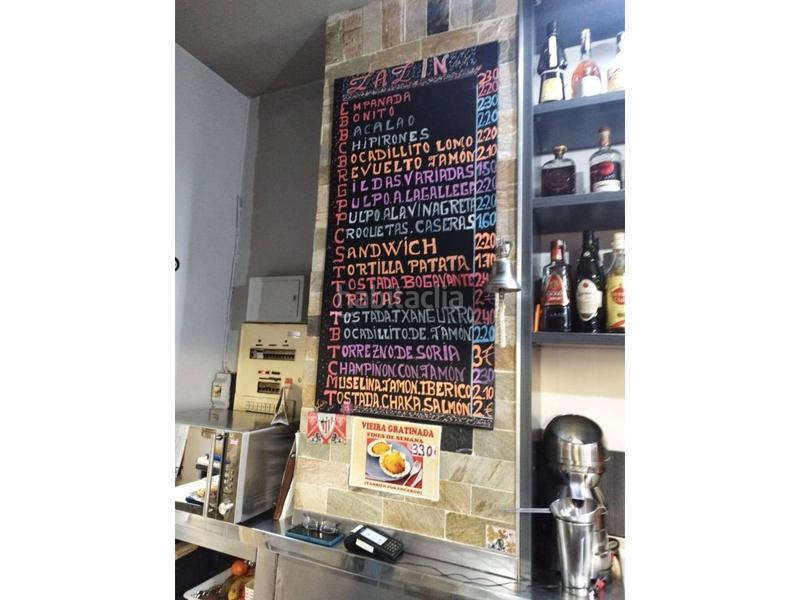 ZAZIN
EMPANADA 2'30
BONITO 2'20
BACALAO 2'30
CHIPIRONES 2'20
BOCADILLITO LOMO 2'20
REVUELTO JAMÓN 2'10
GILDAS.VARIADAS 1'50
PULPO.A.LAGALLEGA 2'20
PULPO.ALA.VINAGRETA 2'20
CROQUETAS.CASERAS 1'60
SANDWICH 2'20
TORTILLA PATATA 1'70
TOSTADA.BOGAVANTE 2'4
OREJAS 2€
TOSTADA.TXANGURRO 2'40
BOCADILLITO.DE.JAMON 2'20
TORREZNO.DE.SORIA 3'€
CHAMPIÑON.CON.JAMON 2'30
MUSELINA.JAMON.IBERICO 2'10
TOSTADA.CHAKA.SALMÓN 2'€
habitaclia
VIEIRA GRATINADA
FINES DE SEMANA
3'30€
(TAMBIÉN POR ENCARGO)